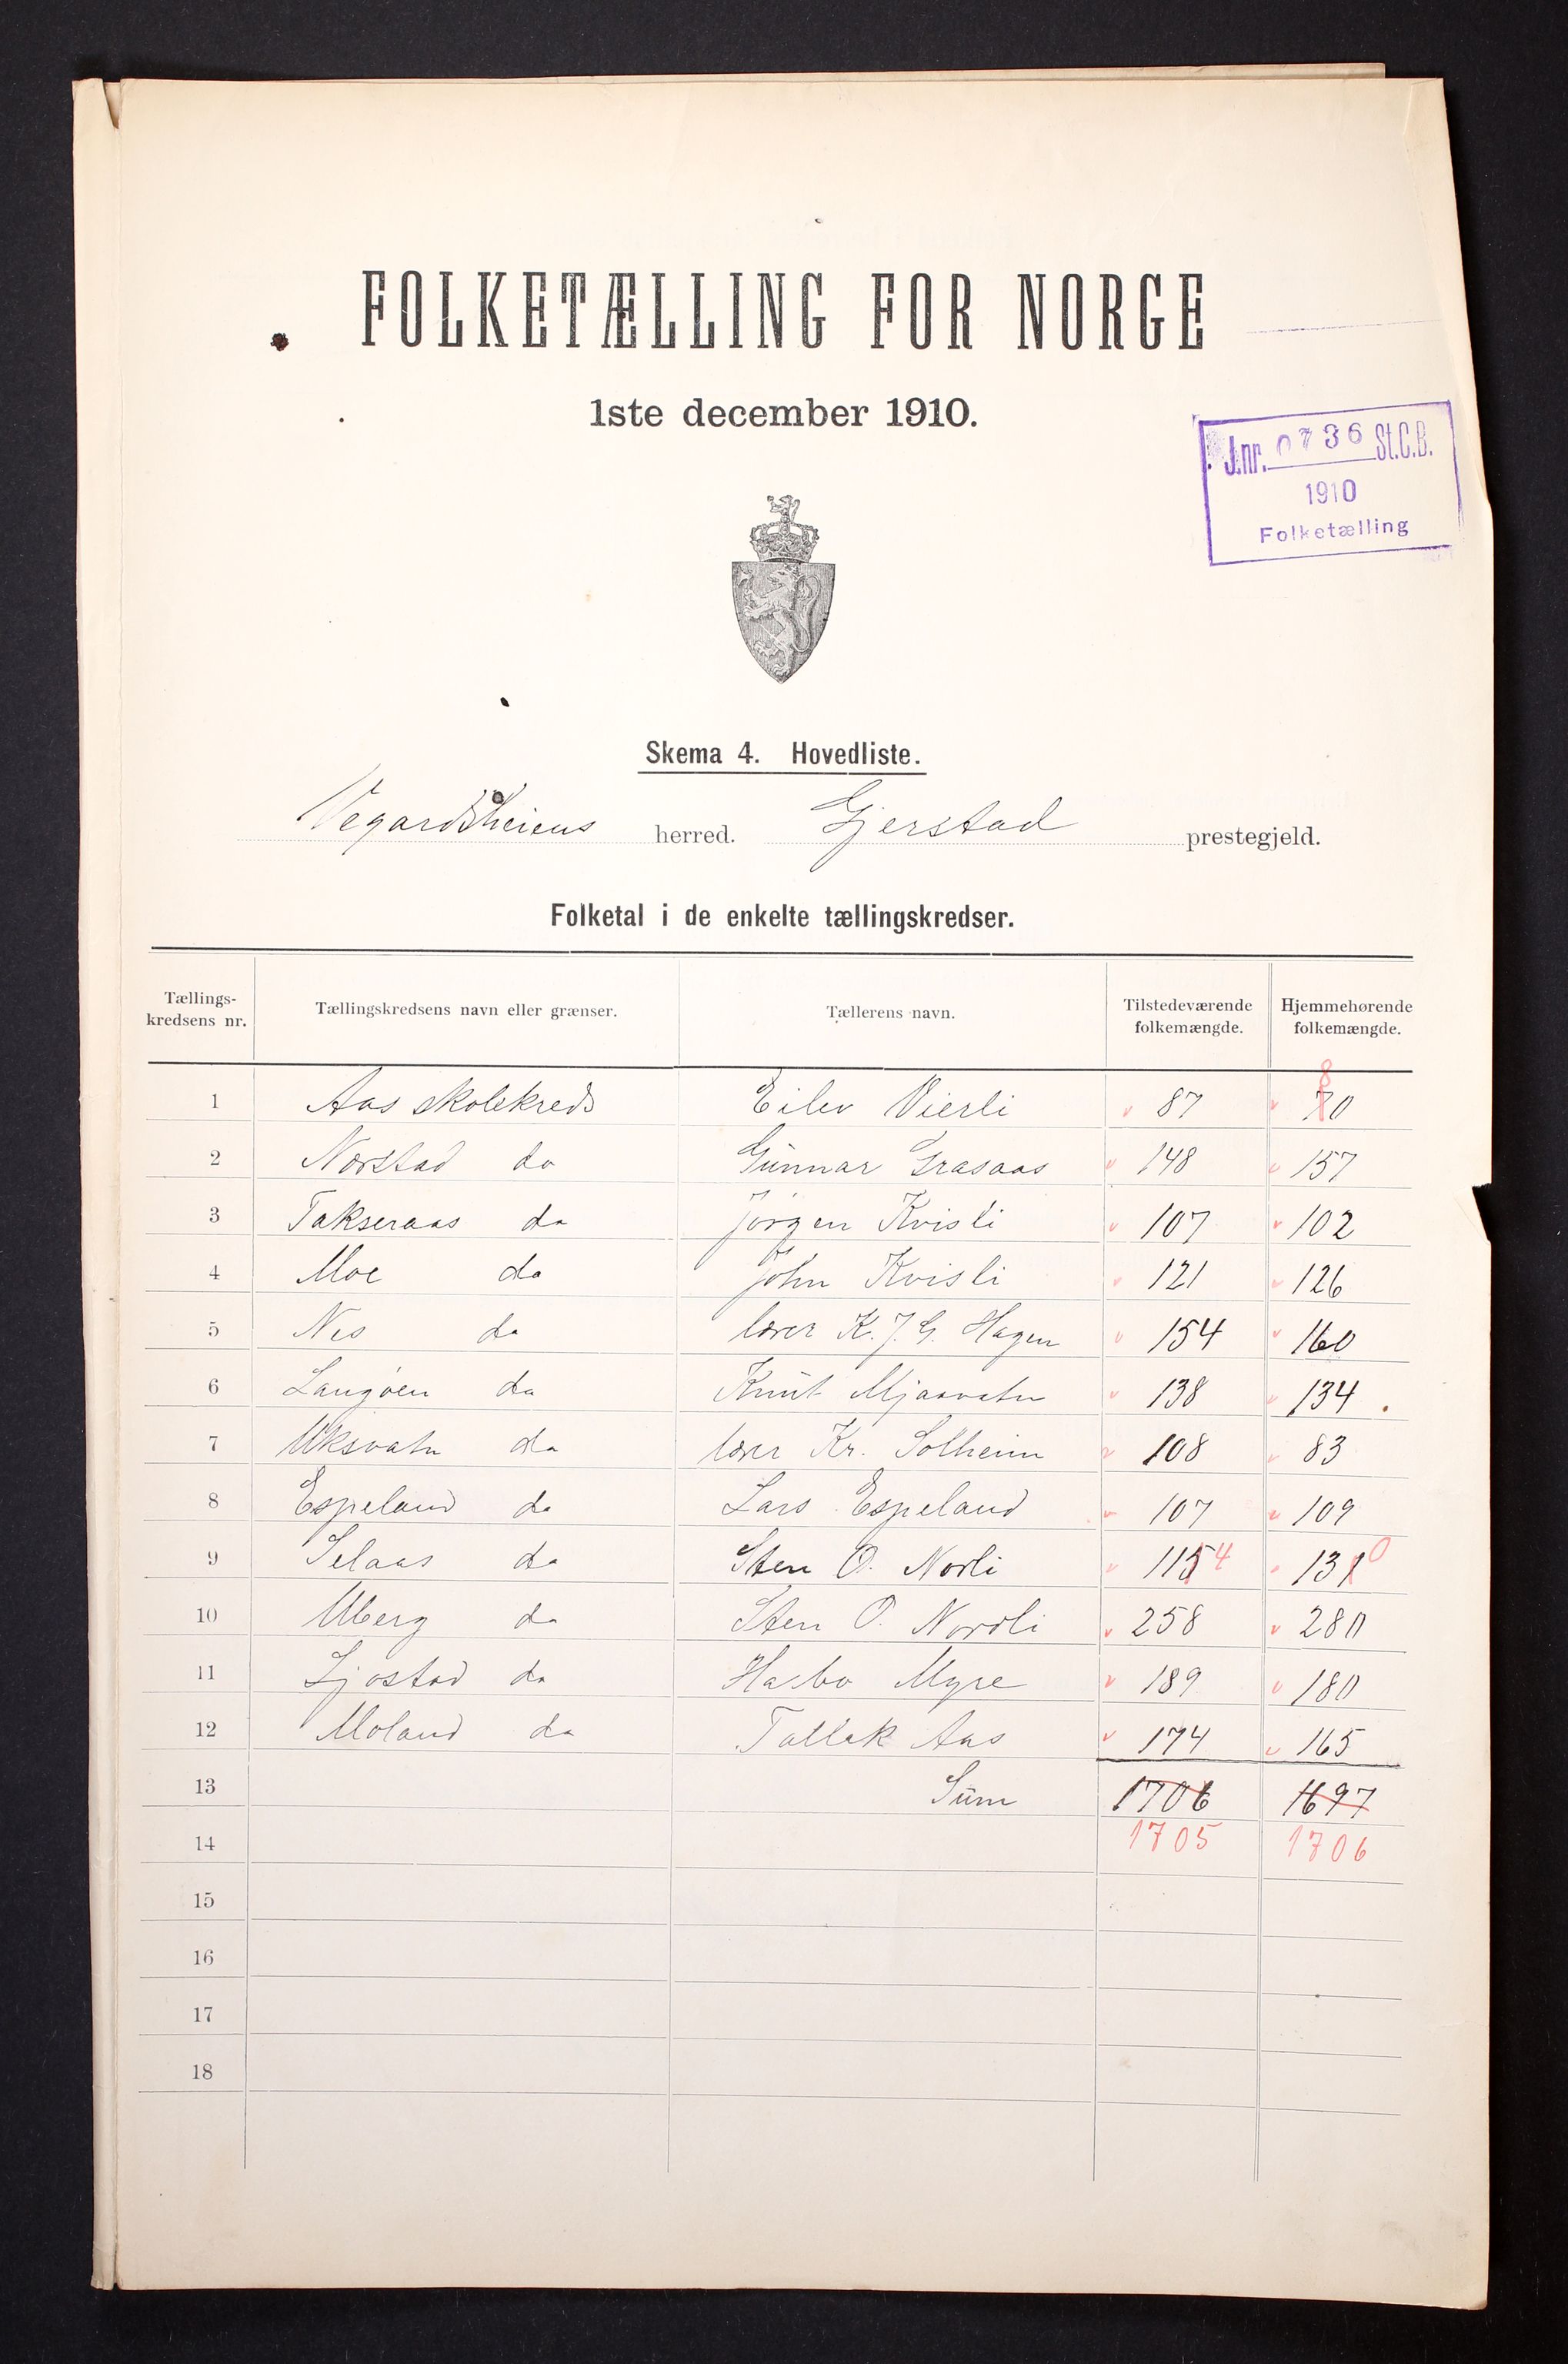 FOLKETÆLLING FOR NORGE
1ste december 1910.
J.nr. 0736 St.C.B.
1910
Folketælling
Skema 4. Hovedliste.
Vegardsheiens herred. Gjerstad prestegjeld.
Folketal i de enkelte tællingskredser.
Tællings-kredsens nr. Tællingskredsens navn eller grænser. Tællerens navn. Tilstedeværende folkemængde. Hjemmehørende folkemængde.
8
1 Aas skolekreds Eilev Vierli 87 70
2 Nærstad do Gunnar Grasaas 148 157
3 Takseraas do Jørgen Kvisli 107 102
4 Moe do John Kvisli 121 126
5 Nes do lærer K. J. G. Hagen 154 160
6 Langøen do Knut Mjaavatn 138 134
7 Uksvatn do lærer Kr. Solheim 108 83
8 Espeland do Lars Espeland 107 109
9 Selaas do Sten O. Norli 115 4 131 0
10 Uberg do Sten O. Nordli 258 280
11 Ljøstad do Halvo Myre 189 180
12 Moland do Tallak Aas 174 165
13 Sum 1706 1697
14 1705 1706
15
16
17
18